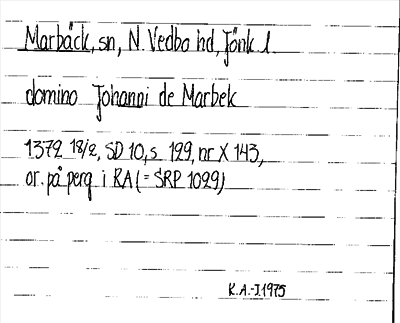 Marbäck, sn, N. Vedbo hd, Jönk. l.
domino Johanni de Marbek
1372 18/2, SD 10, s 129, nr X 143,
or. på perg. i RA (= SRP 1029)
K.A.-J. 1975